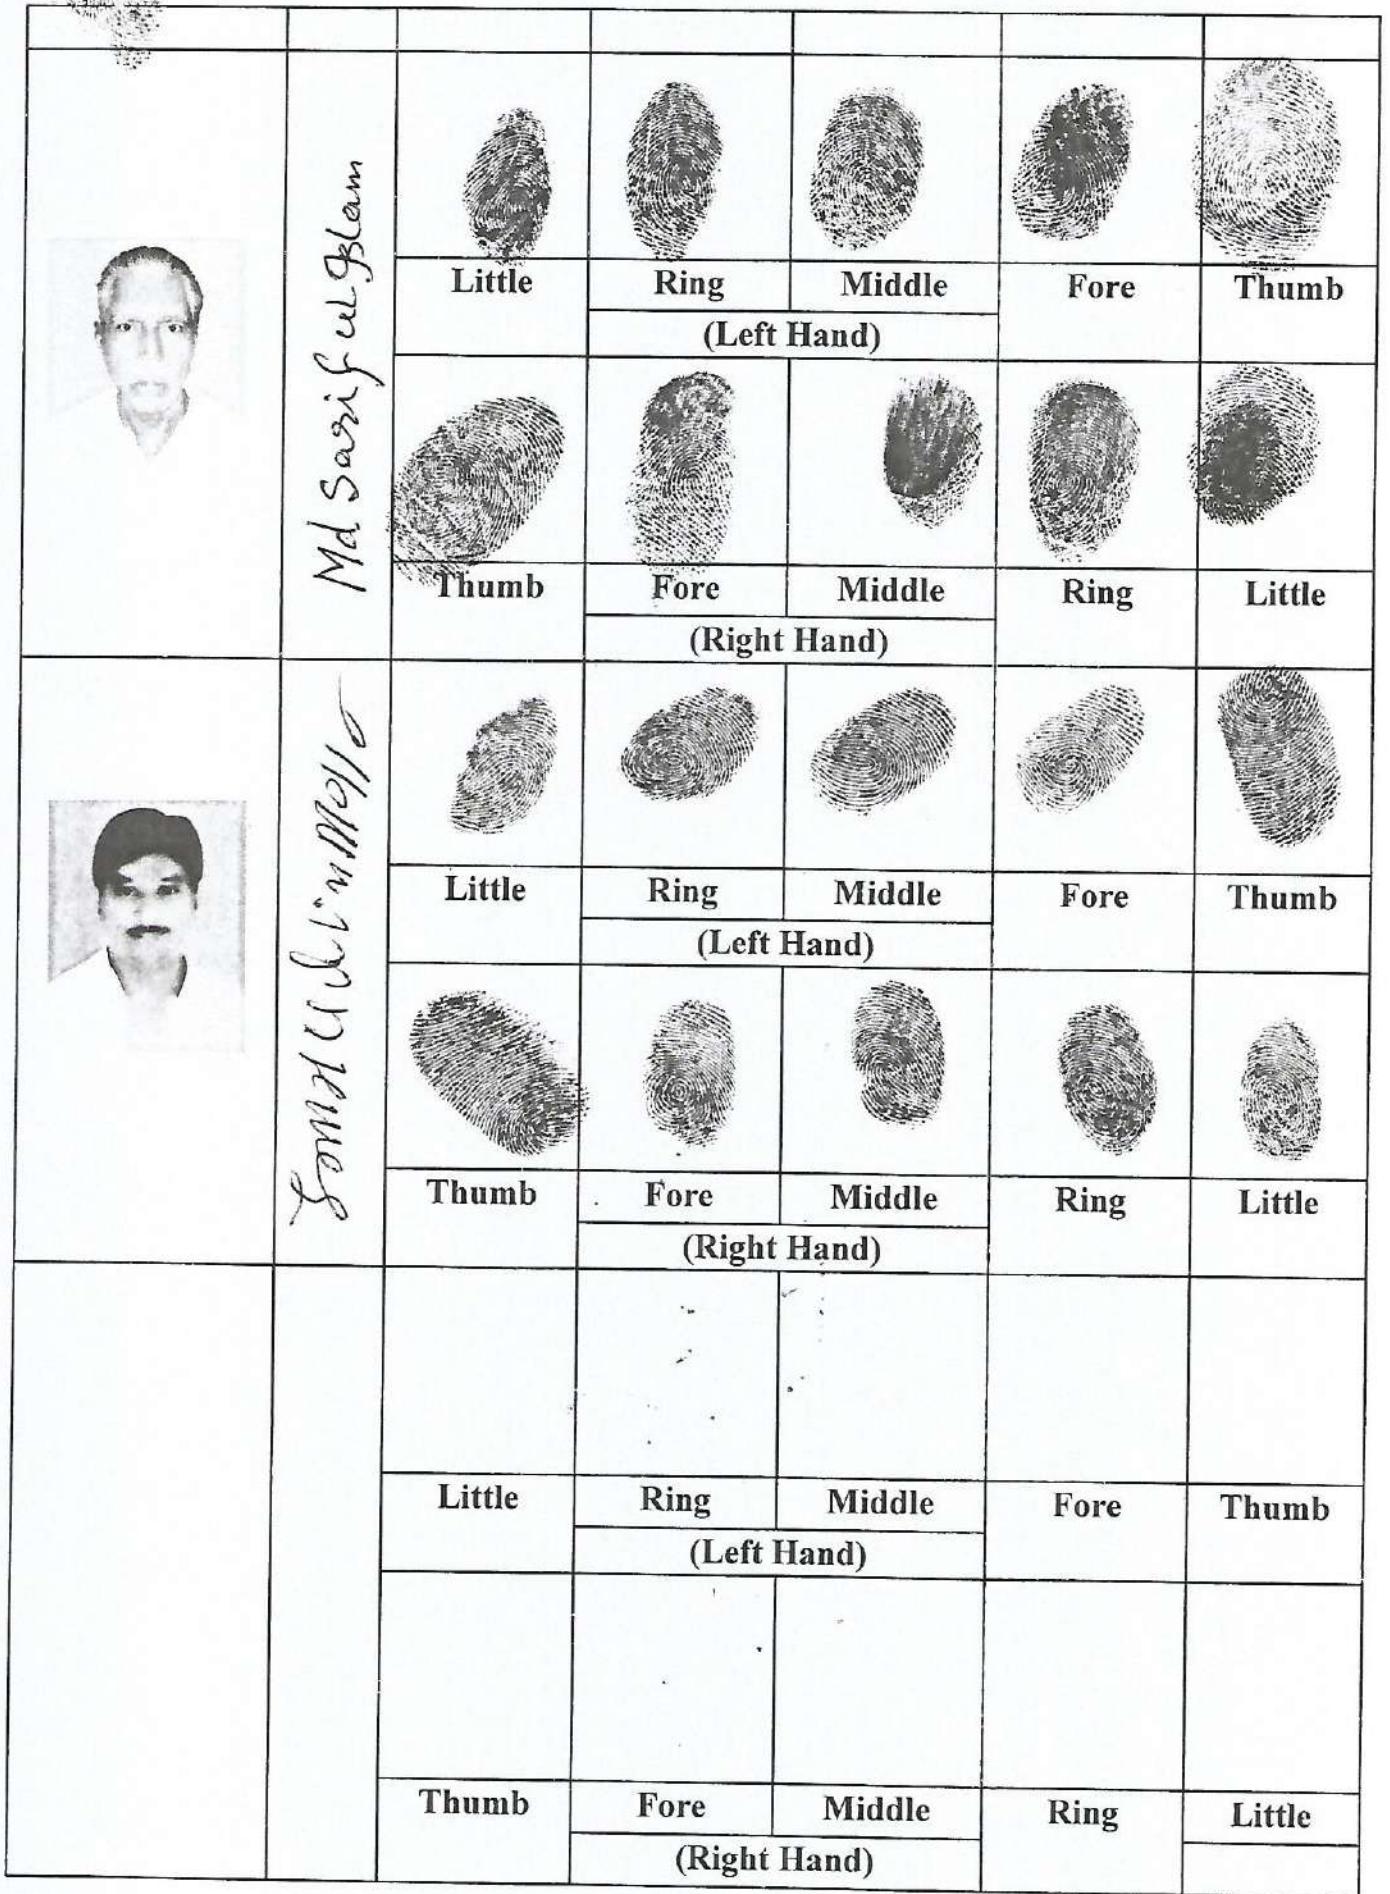 Md Sariful Islam
Little Ring Middle Fore Thumb
(Left Hand)
Thumb Fore Middle Ring Little
(Right Hand)
Little Ring Middle Fore Thumb
(Left Hand)
Thumb Fore Middle Ring Little
(Right Hand)
Little Ring Middle Fore Thumb
(Left Hand)
Thumb Fore Middle Ring Little
(Right Hand)